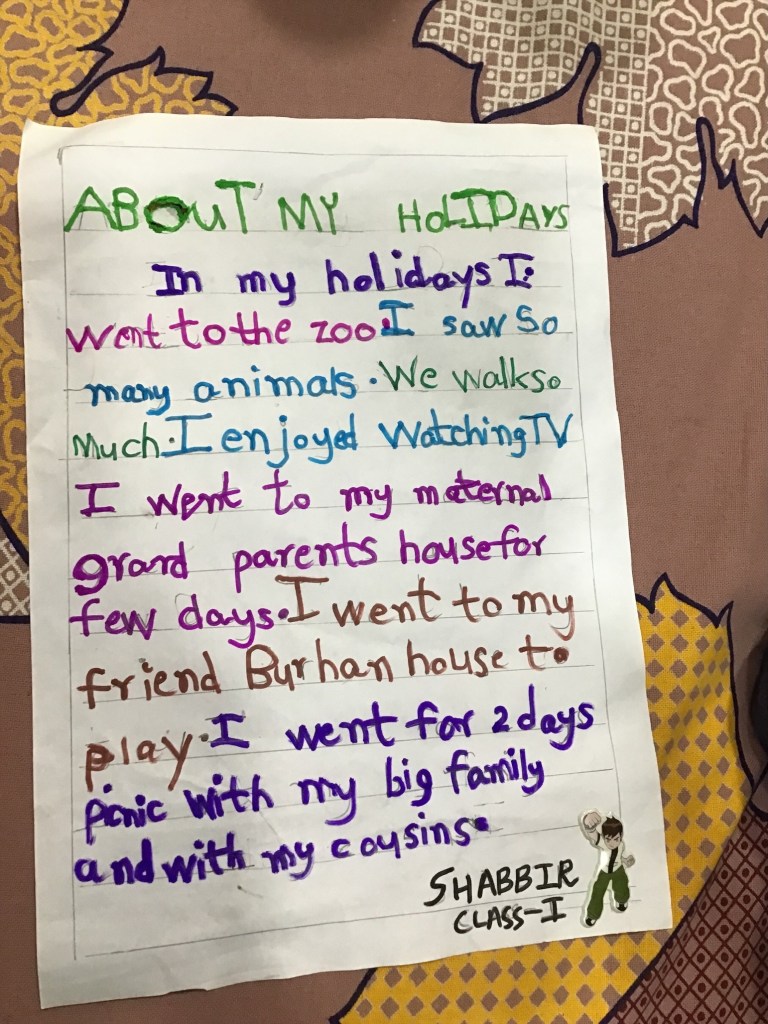 ABOUT MY HOLIDAYS
In my holidays I
went to the zoo. I saw so
many animals. We walk so
much. I enjoyed watching TV
I went to my maternal
grand parents house for
few days. I went to my
friend Burhan house to
play. I went for 2 days
picnic with my big family
and with my cousins.
SHABBIR
CLASS-I